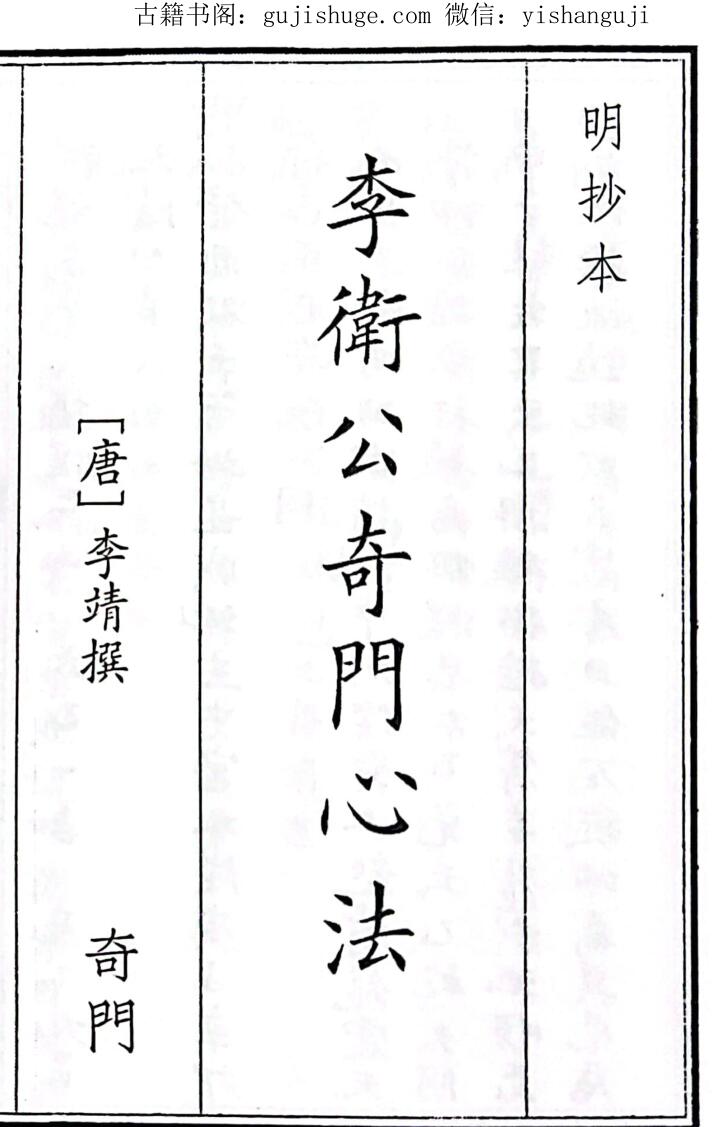 古籍书阁：gujishuge.com 微信：yishanguji
明抄本
李衛公奇門心法
[唐]李靖撰
奇門